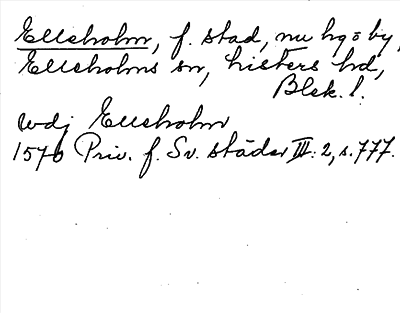 Elleholm, f. stad, nu hg o by,
Elleholms sn, Listers hd,
Blek. l.
wdj Elleholm
1576 Priv. f. Sv. städer III: 2, s. 777.